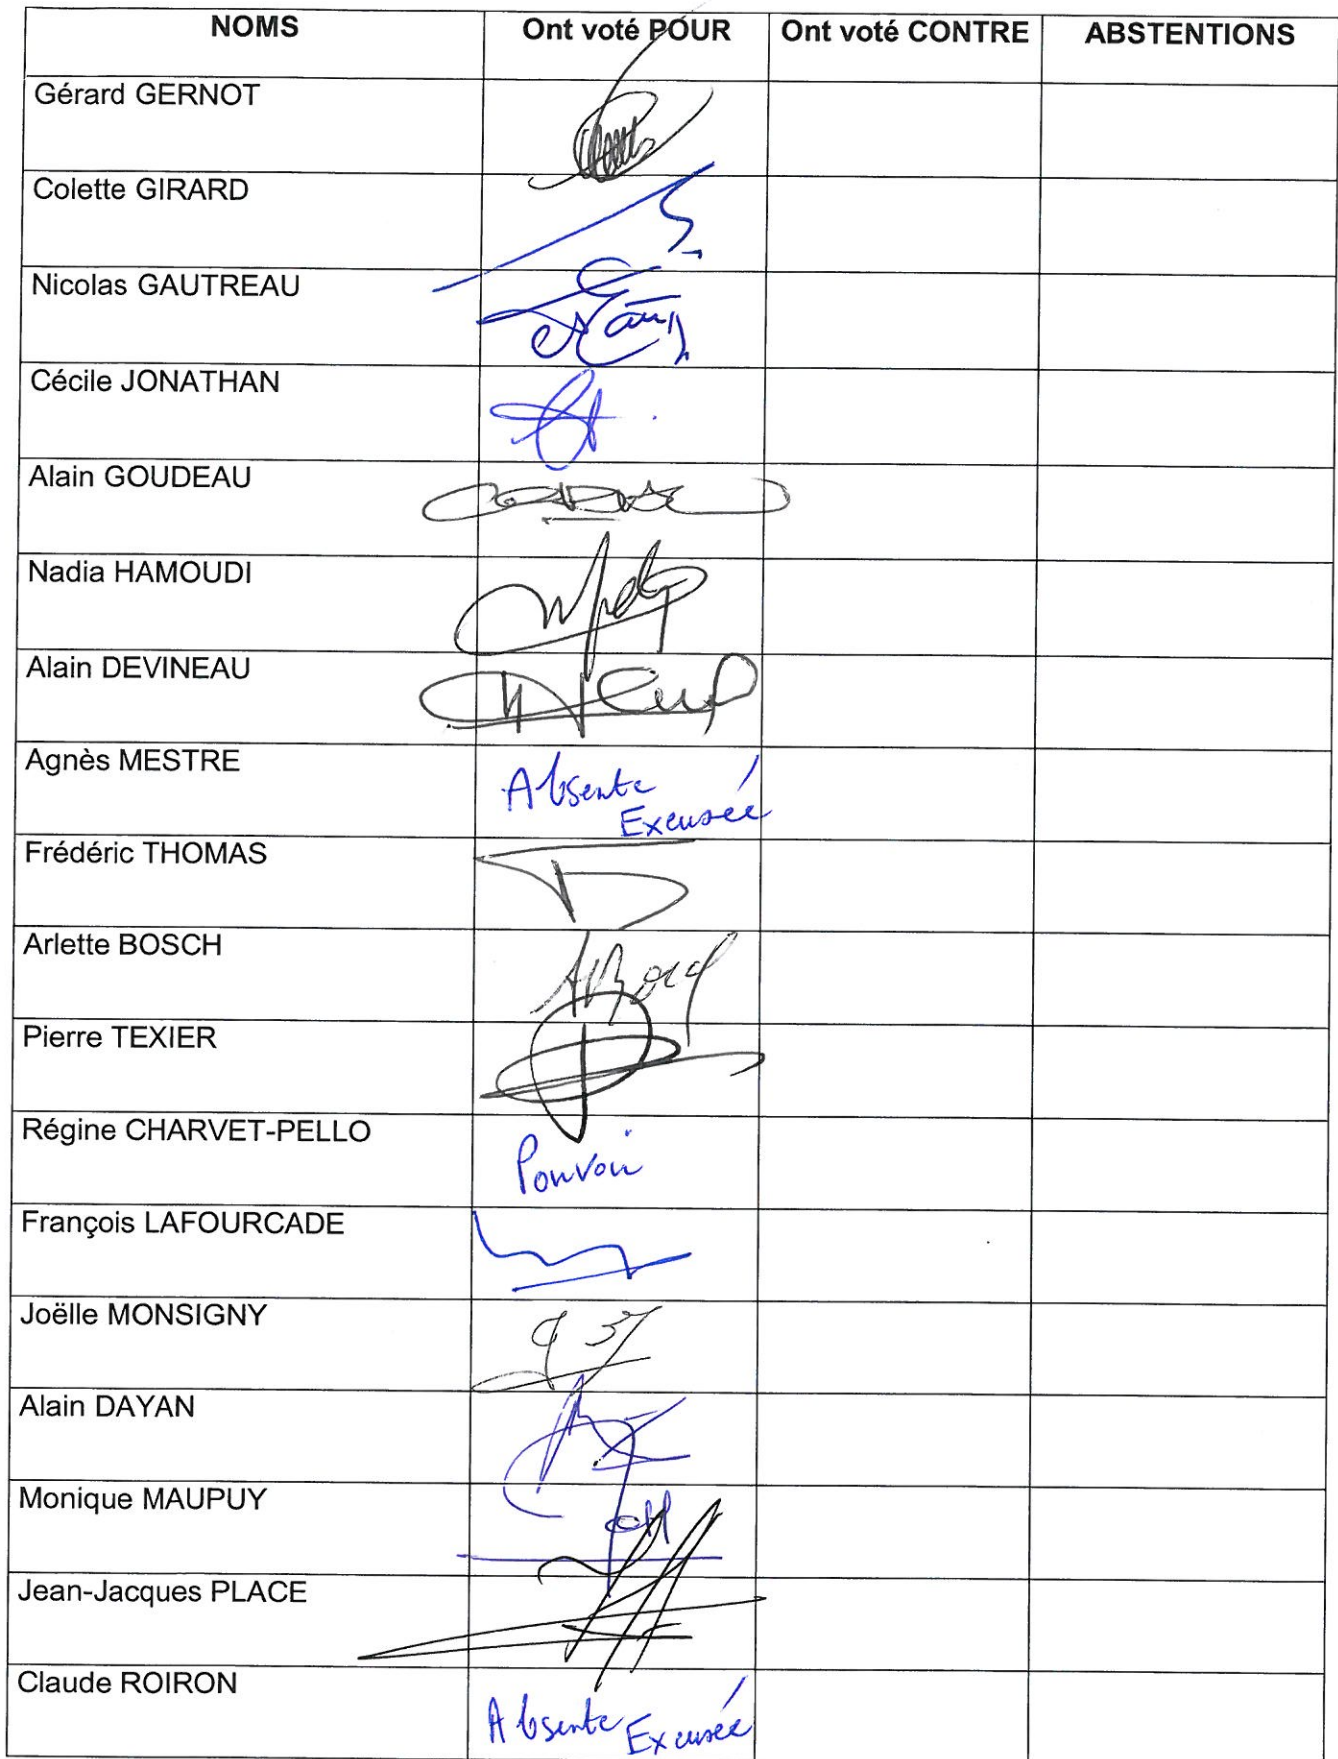 NOMS Ont voté POUR Ont voté CONTRE ABSTENTIONS
Gérard GERNOT
Colette GIRARD
Nicolas GAUTREAU
Cécile JONATHAN
Alain GOUDEAU
Nadia HAMOUDI
Alain DEVINEAU
Agnès MESTRE Absente
Excusée
Frédéric THOMAS
Arlette BOSCH
Pierre TEXIER
Régine CHARVET-PELLO Pouvoir
François LAFOURCADE
Joëlle MONSIGNY
Alain DAYAN
Monique MAUPUY
Jean-Jacques PLACE
Claude ROIRON Absente Excusée